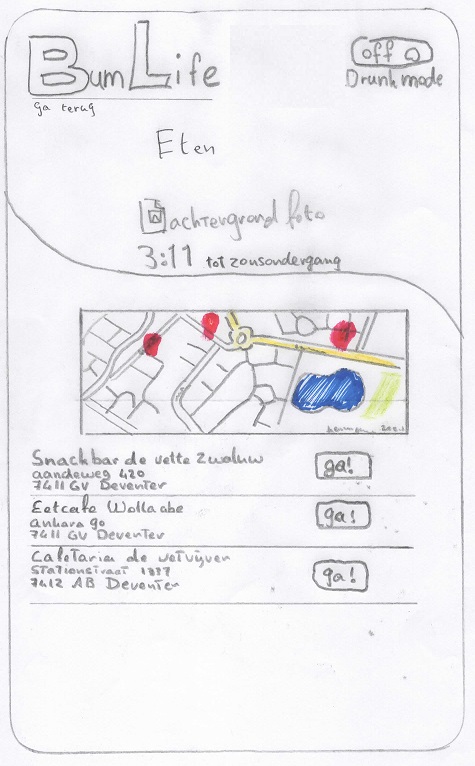 BumLife
off
Drunk mode
ga terug
Eten
achtergrond foto
3:11 tot zonsondergang
Snackbar de vette zwaluw
aandeweg 420
7411 GV Deventer
ga!
Eetcafe Wollaabe
Ankara 90
7411 GV Deventer
ga!
Cafetaria de vetvijver
Stationstraat 1337
7412 AB Deventer
ga!